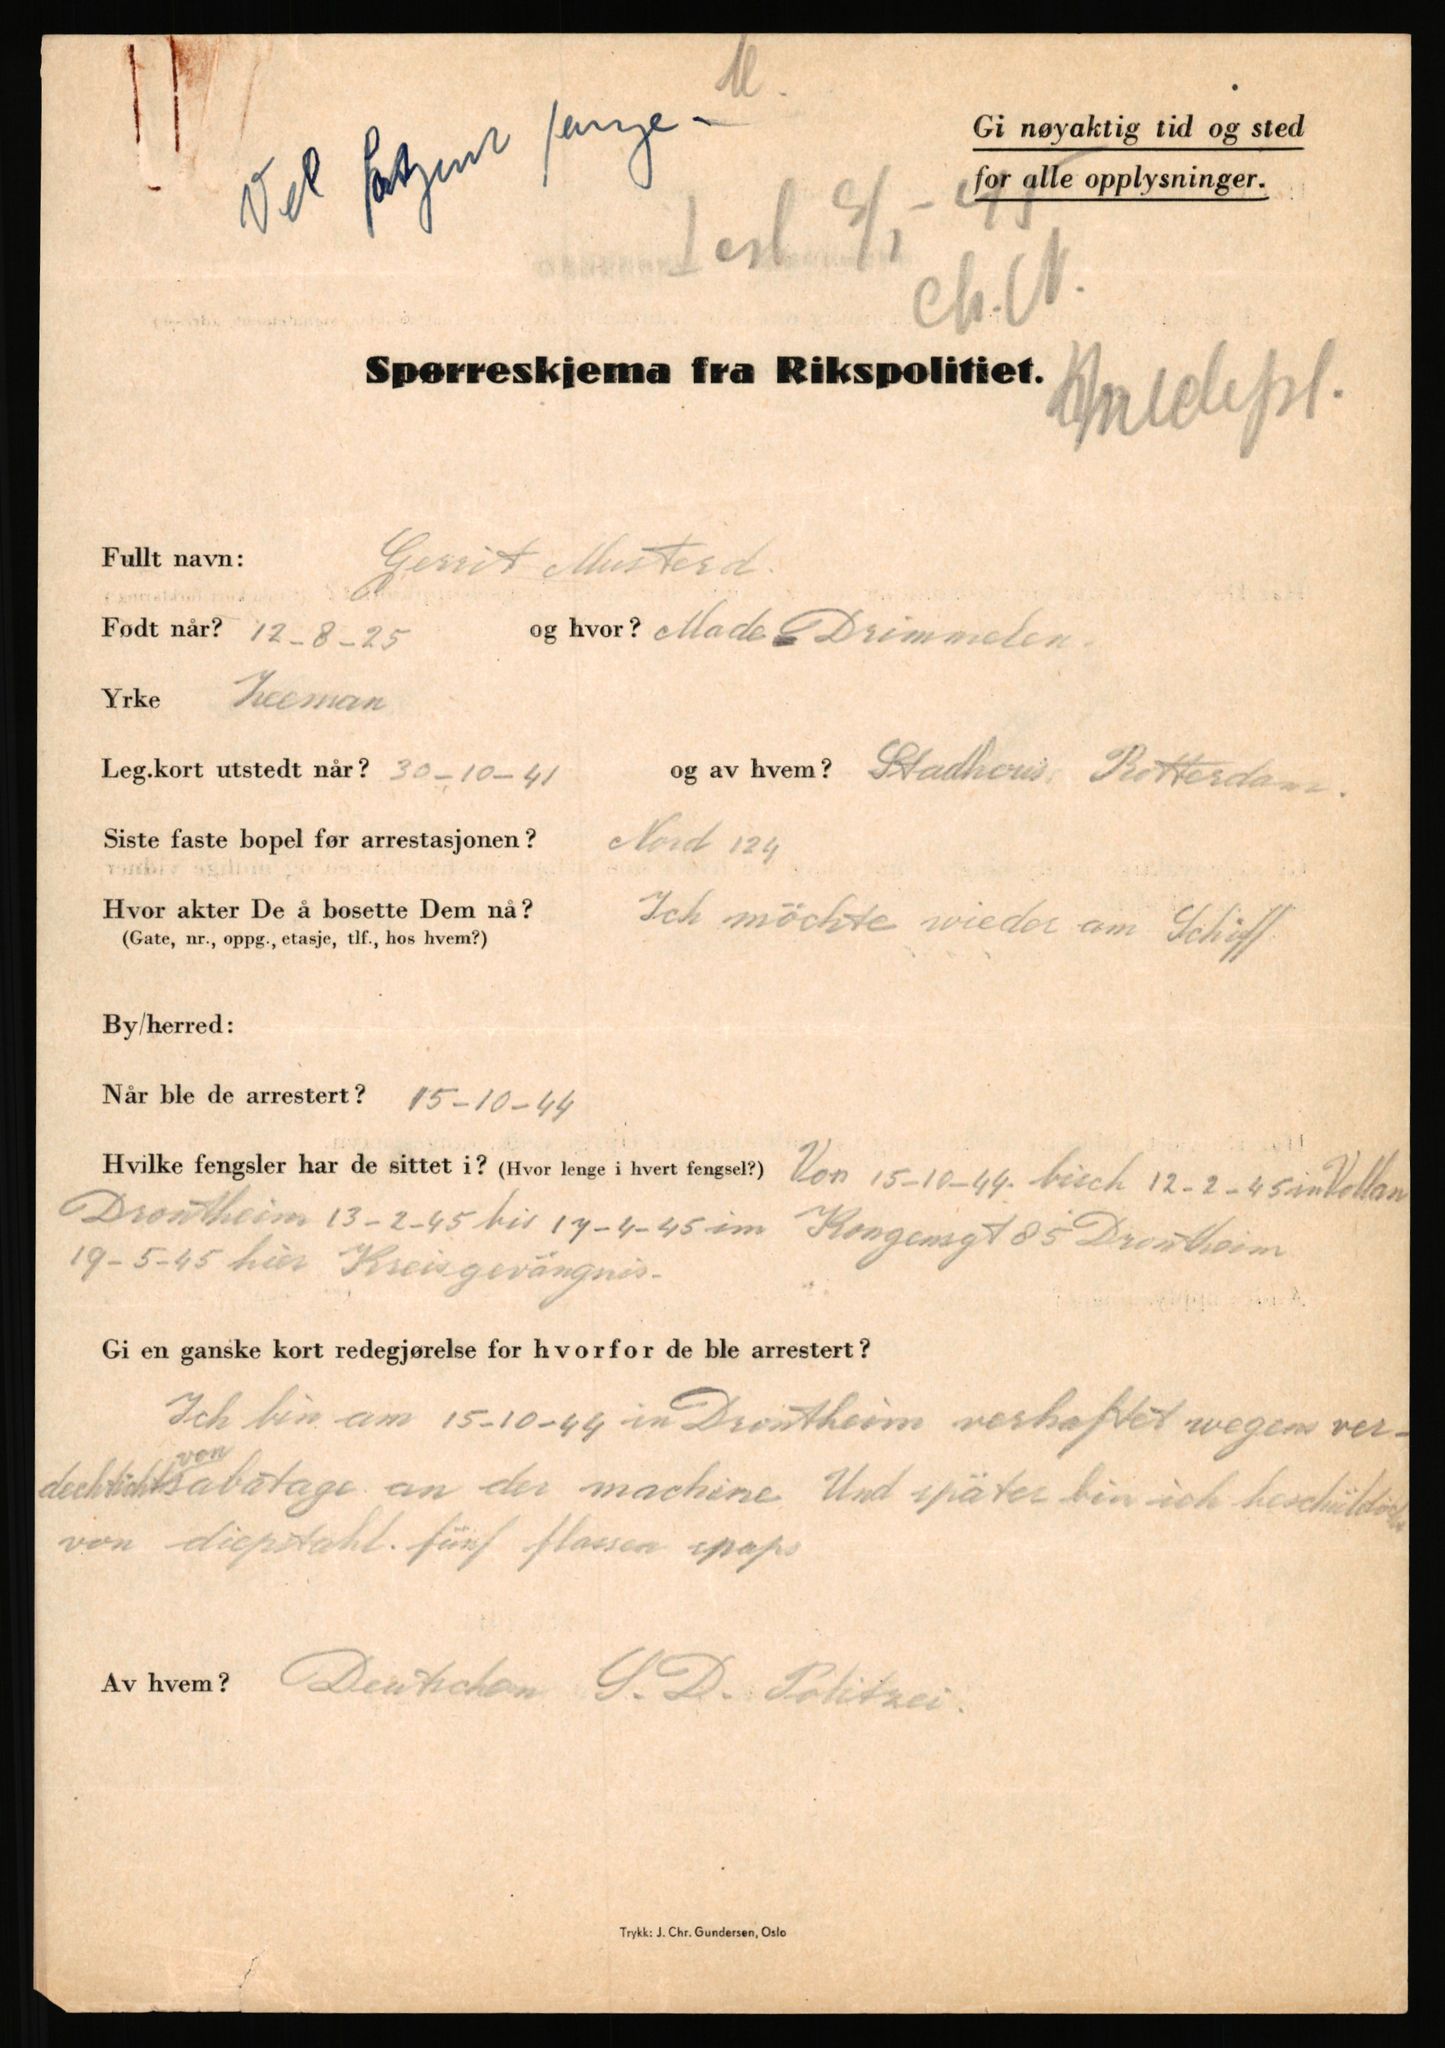 M.
Vel fange -
Gi nøyaktig tid og sted
for alle opplysninger.
Ch. N.
Spørreskjema fra Rikspolitiet.
Fullt navn: Gerrit Musterd.
Født når? 12-8-25 og hvor? Made Drimmelen.
Yrke Zeeman
Leg.kort utstedt når? 30-10-41 og av hvem? Stadhuis Rotterdam.
Siste faste bopel før arrestasjonen? Nord 124
Hvor akter De å bosette Dem nå? Ich möchte wieder am Schiff
(Gate, nr., oppg., etasje, tlf., hos hvem?)
By/herred:
Når ble de arrestert? 15-10-44
Hvilke fengsler har de sittet i? (Hvor lenge i hvert fengsel?) Von 15-10-44. bisch 12-2-45 in Vollan
Drontheim 13-2-45 bis 17-4-45 im Kongensgt 85 Drontheim
19-5-45 hier Kreisgevängnis.
Gi en ganske kort redegjørelse for hvorfor de ble arrestert?
Ich bin am 15-10-44 in Drontheim verhaftet wegens ver-
von
dechticht sabotage an der machine Und später bin ich
von diepstahl. fünf flassen snaps
Av hvem? Deutschen S.D. Politzei.
Trykk: J. Chr. Gundersen, Oslo